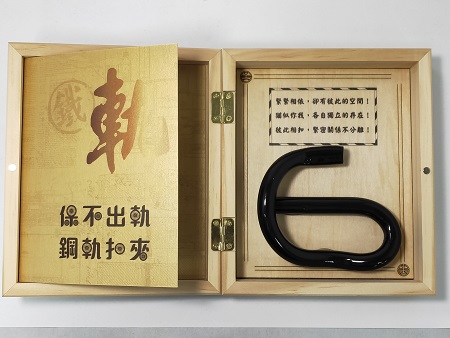 鐵
軌
保不出軌
鋼軌扣夾
緊緊相依，卻有彼此的空間！
貓似作我，各自獨立的存在！
彼此相扣，緊密關係不分離！